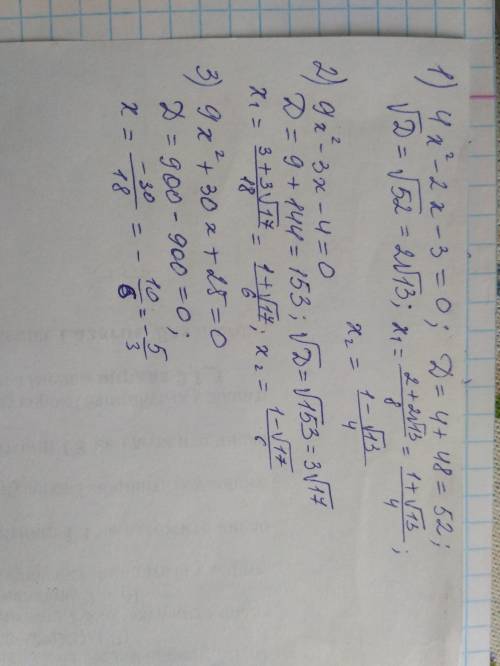 1) 4x² - 2x - 3 = 0; D = 4 + 48 = 52;
√D = √52 = 2√13; x₁ = (2+2√13)/8 = (1+√13)/4;
x₂ = (1-√13)/4
2) 9x² - 3x - 4 = 0
D = 9 + 144 = 153; √D = √153 = 3√17
x₁ = (3+3√17)/18 = (1+√17)/6; x₂ = (1-√17)/6
3) 9x² + 30x + 25 = 0
D = 900 - 900 = 0;
x = -30/18 = -10/6 = -5/3